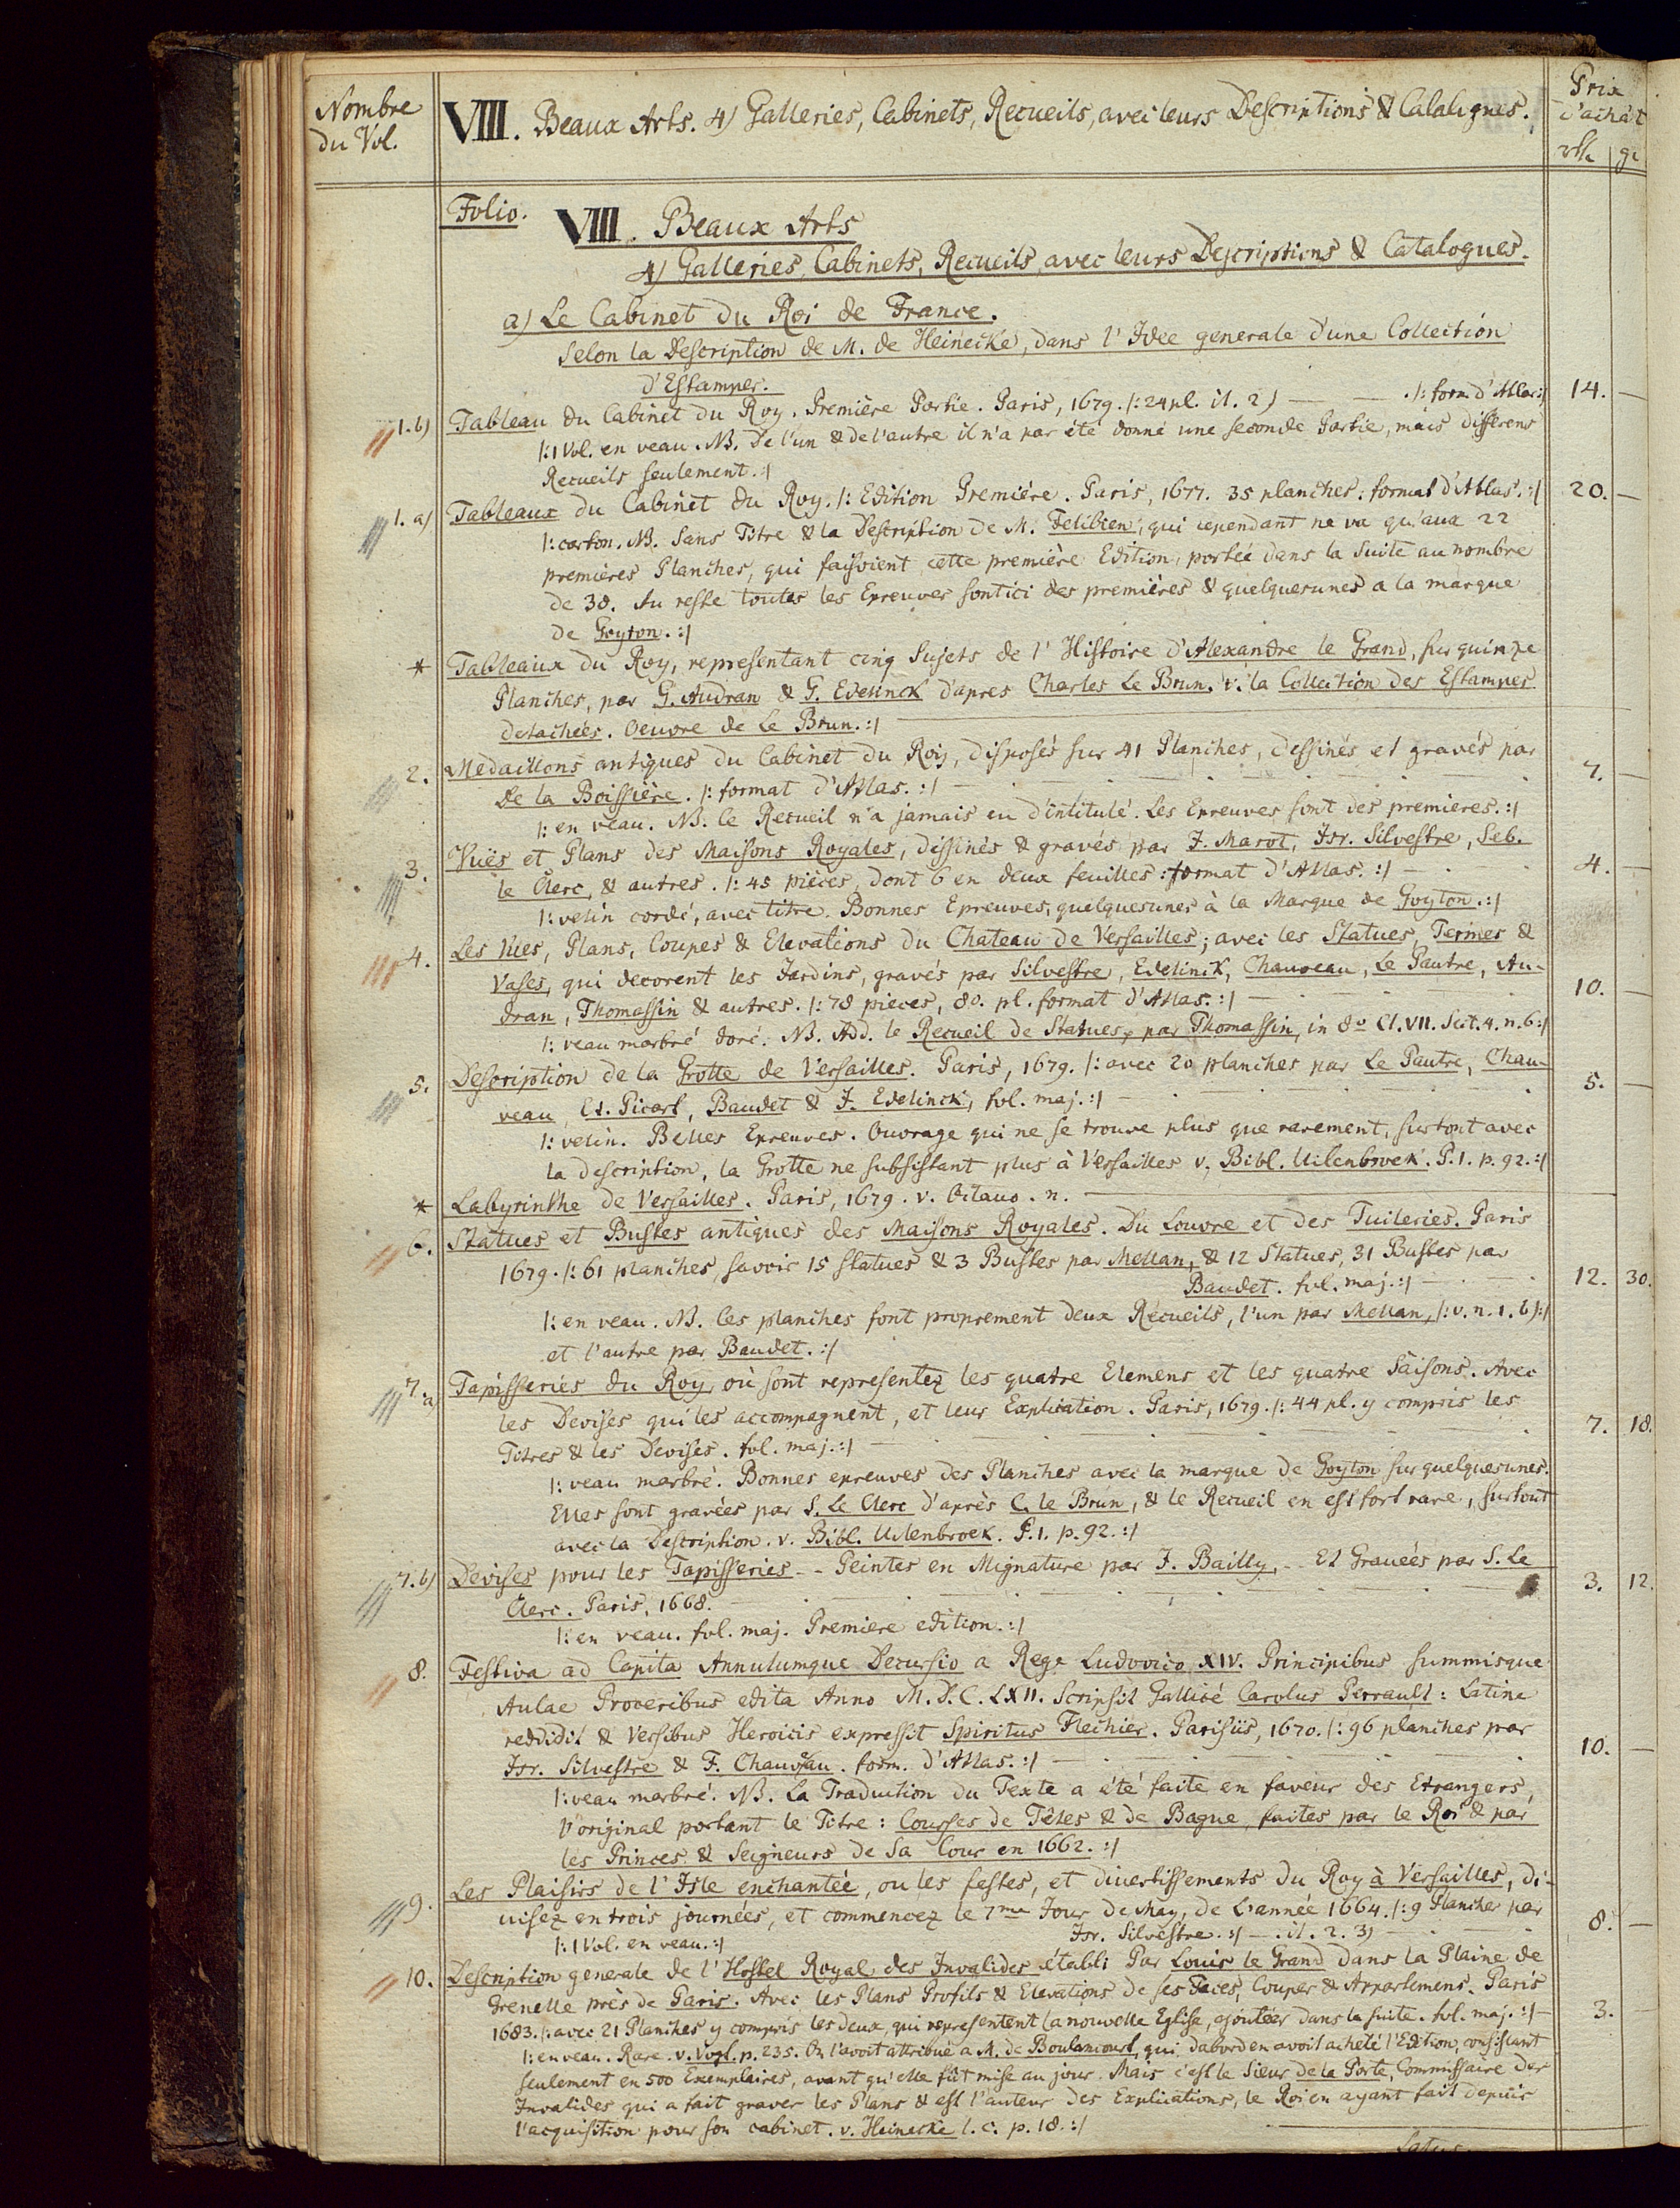 Nombre du Vol.
VIII. Beaux Arts. 4) Galleries, Cabinets, Recueils, avec leurs Descriptions & Catalogues.
Prix d'achât
rth gr
Folio. VIII. Beaux Arts
4) Galleries, Cabinets, Recueils, avec leurs Descriptions & Catalogues.
a) Le Cabinet du Roi de France.
Selon la Description de M. de Heinecke, dans l'Idée generale d'une Collection
d'Estampes.
1.b) Tableau du Cabinet du Roy. Première Partie. Paris, 1679. /: 24 pl. it. 2) — . /: form. d'Atlas :/ 14. —
/: 1 Vol. en veau. NB. De l'un & de l'autre il n'a par été donné une seconde Partie, mais differens
Recueils seulement. :/
1. a) Tableaux du Cabinet du Roy. /: Edition Première. Paris, 1677. 35 planches. format d'Atlas. :/ 20. —
/: carton. NB. Sans Titre & la Description de M. Felibien, qui cependant ne va qu'aux 22
premières Planches, qui faisoient cette première Edition, portée dans la Suite au nombre
de 38. Au reste toutes les Epreuves sont ici des premières & quelquesunes a la marque
de Goyton. :/
* Tableaux du Roy, representant cinq Sujets de l'Histoire d'Alexandre le Grand, sur quinze
Planches, par G. Audran & G. Edelinck d'apres Charles Le Brun. v. la Collection des Estampes
detachées. Oeuvre de Le Brun. :/
2. Medaillons antiques du Cabinet du Roy, disposés sur 41 Planches, dessinés et gravés par
De la Boissière. /: format d'Atlas. :/ — 7. —
/: en veau. NB. Ce Recueil n'a jamais eu d'intitulé. Les Epreuves sont des premieres. :/
3. Vuës et Plans des Maisons Royales, dessinés & gravés par J. Marot, Isr. Silvestre, Seb.
le Clerc, & autres. /: 45 pièces, dont 6 en deux feuilles : format d'Atlas. :/ — 4. —
/: velin cordé, avec titre. Bonnes Epreuves, quelquesunes à la Marque de Goyton. :/
4. Les Vues, Plans, Coupes & Elevations du Chateau de Versailles; avec les Statues, Termes &
Vases, qui decorent les Jardins, gravés par Silvestre, Edelinck, Chauveau, Le Pautre, Au-
dran, Thomassin & autres. /: 78 pieces, 80. pl. format d'Atlas. :/ — 10. —
/: veau marbré doré. NB. Add. le Recueil de Statues, par Thomassin, in 8vo Cl. VII. Sect. 4. n. 6 :/
5. Description de la Grotte de Versailles. Paris, 1679. /: avec 20 planches par Le Pautre, Chau-
veau, Et. Picart, Baudet & J. Edelinck, fol. maj. :/ — 5. —
/: velin. Belles Epreuves. Ouvrage qui ne se trouve plus que rarement, surtout avec
la description, la Grotte ne subsistant plus à Versailles v. Bibl. Uilenbroek. P. 1. p. 92. :/
* Labyrinthe de Versailles. Paris, 1679. v. Octavo. n. —
6. Statues et Bustes antiques des Maisons Royales. Du Louvre et des Tuileries. Paris
1679. /: 61 planches, savoir 15 statues & 3 Bustes par Mellan, & 12 Statues, 31 Bustes par
Baudet. fol. maj. :/ — 12. 30.
/: en veau. NB. Ces planches font proprement deux Recueils, l'un par Mellan, /: v. n. 1. b) :/
et l'autre par Baudet. :/
7. a) Tapisseries du Roy, où sont representez les quatre Elemens et les quatre Saisons. Avec
les Devises qui les accompagnent, et leur Explication. Paris, 1679. /: 44 pl. y compris les
Titres & les Devises. fol. maj. :/ — 7. 18.
/: veau marbré. Bonnes epreuves des Planches avec la marque de Goyton sur quelquesunes.
Elles sont gravées par S. Le Clerc d'après C. le Brun, & le Recueil en est fort rare, surtout
avec la Description. v. Bibl. Uilenbroek. P. 1. p. 92. :/
7. b) Devises pour les Tapisseries -- Peintes en Mignature par J. Bailly, -- Et Gravées par S. Le
Clerc. Paris, 1668. 3. 12.
/: en veau. fol. maj. Premiere edition. :/
8. Festiva ad Capita Annulumque Decursio a Rege Ludovico XIV. Principibus summisque
Aulae Proceribus edita Anno M.D.C.LXII. Scripsit Gallicé Carolus Perrault: Latine
reddidit & Versibus Heroicis expressit Spiritus Flechier. Parisiis, 1670. /: 96 planches par
Isr. Silvestre & F. Chauveau. form. d'Atlas. :/ — 10. —
/: veau marbré. NB. La Traduction du Texte a été faite en faveur des Etrangers,
l'original portant le Titre: Courses de Têtes & de Bague, faites par le Roi & par
les Princes & Seigneurs de Sa Cour en 1662. :/
9. Les Plaisirs de l'Isle enchantée, ou les festes, et divertissements du Roy à Versailles, di-
visez en trois journées, et commencez le 7me Jour de May, de L'année 1664. /: 9 Planches par
Isr. Silvestre. :/ — . it. 2. 3) — 8. —
/: 1 Vol. en veau. :/
10. Description generale de l'Hostel Royal des Invalides établi Par Louis le Grand dans la Plaine de
Grenelle près de Paris. Avec les Plans Profils & Elevations de ses Faces, Coupes & Appartemens. Paris
1683. /: avec 21 Planches y compris les deux, qui representent la nouvelle Eglise, ajoutées dans la suite. fol. maj. :/ — 3. —
/: en veau. Rare. v. Vogt. p. 235. On l'avoit attribué a M. de Boulancourt, qui d'abord en avoit acheté l'Edition, consistant
seulement en 500 Exemplaires, avant qu'elle fût mise au jour. Mais c'est le Sieur de la Porte, Commissaire des
Invalides qui a fait graver les Plans & est l'auteur des Explications, le Roi en ayant fait depuis
l'acquisition pour son cabinet. v. Heinecke l. c. p. 18. :/
Latus